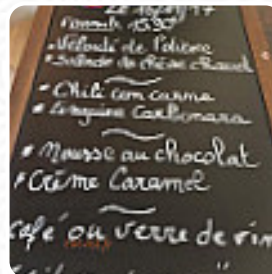 Formule 15,90
• Velouté de Potiron
• Salade de chèvre chaud
• Chili con carne
• Linguine Carbonara
• Mousse au chocolat
• Crème Caramel
café ou verre de vin